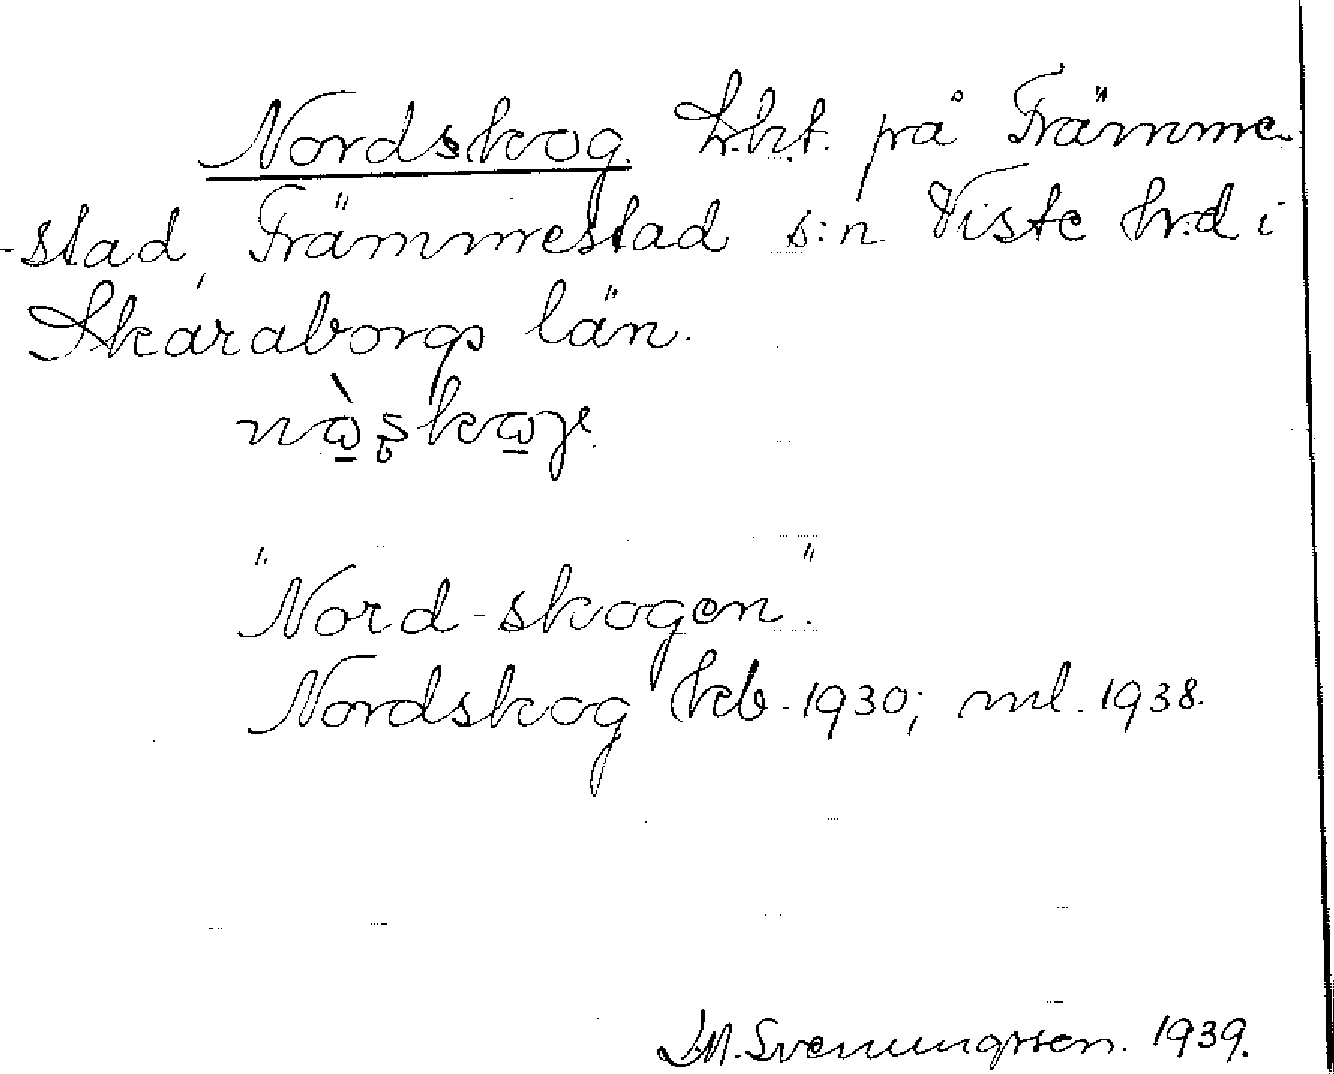 Nordskog. Lht. på Främme-
-stad, Främmestad s:n Viste hrd i
Skaraborgs län.
"Nord-skogen".
Nordskog kb. 1930; ml. 1938.
Svenungsson. 1939.